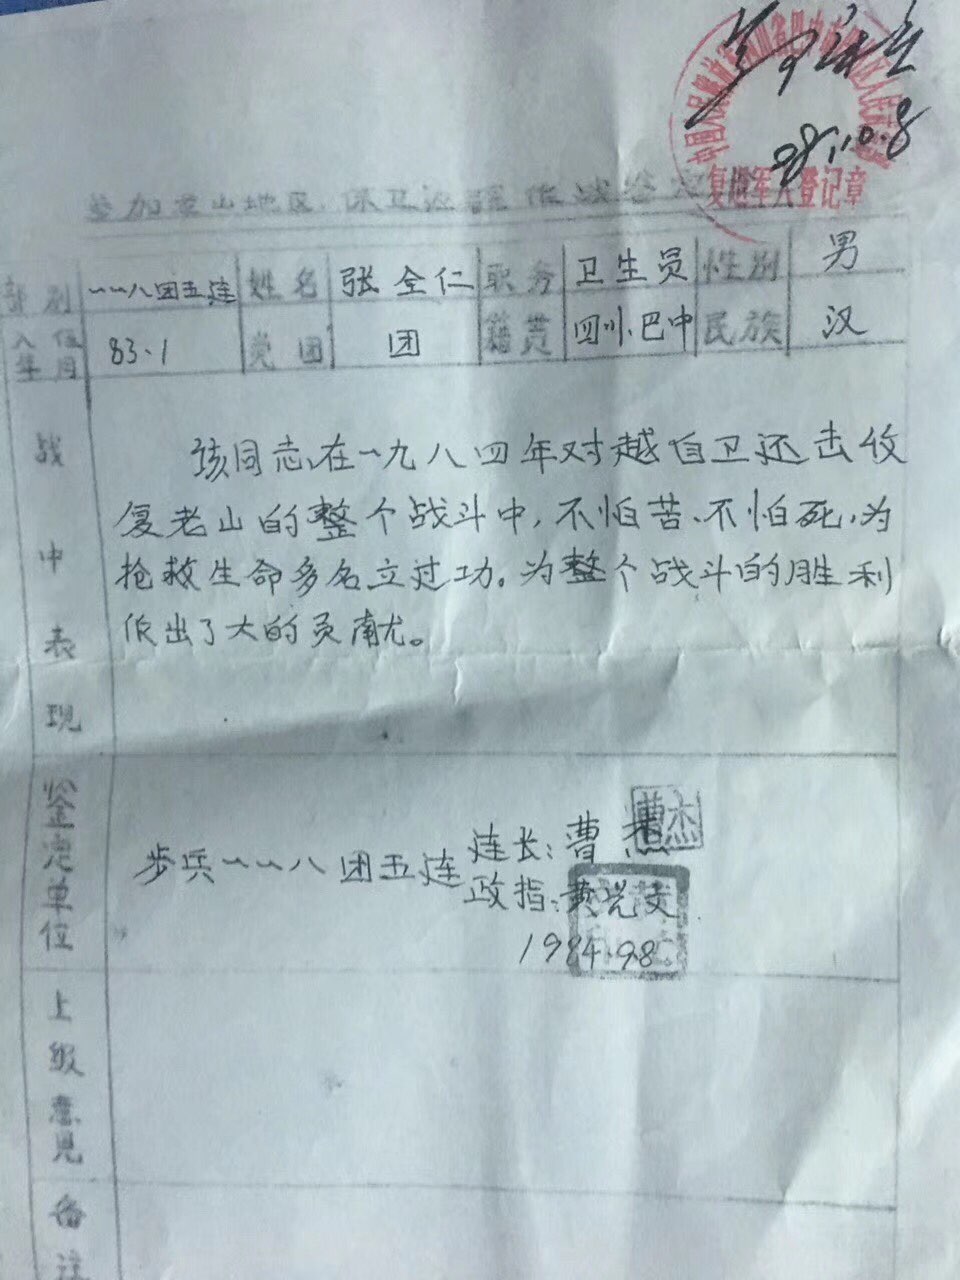 复退军人登记章
参加老山地区保卫边疆作战鉴定
部别 一一八团五连 姓名 张全仁 职务 卫生员 性别 男
入伍年月 83.1 党团 团 籍贯 四川.巴中 民族 汉
战中表现
该同志在一九八四年对越自卫还击收
复老山的整个战斗中,不怕苦、不怕死,为
抢救生命多名立过功。为整个战斗的胜利
作出了大的贡献。
鉴定单位
步兵一一八团五连 连长:曹杰
曹杰
政指:黄光文
1984.9.8
上级意见
备注